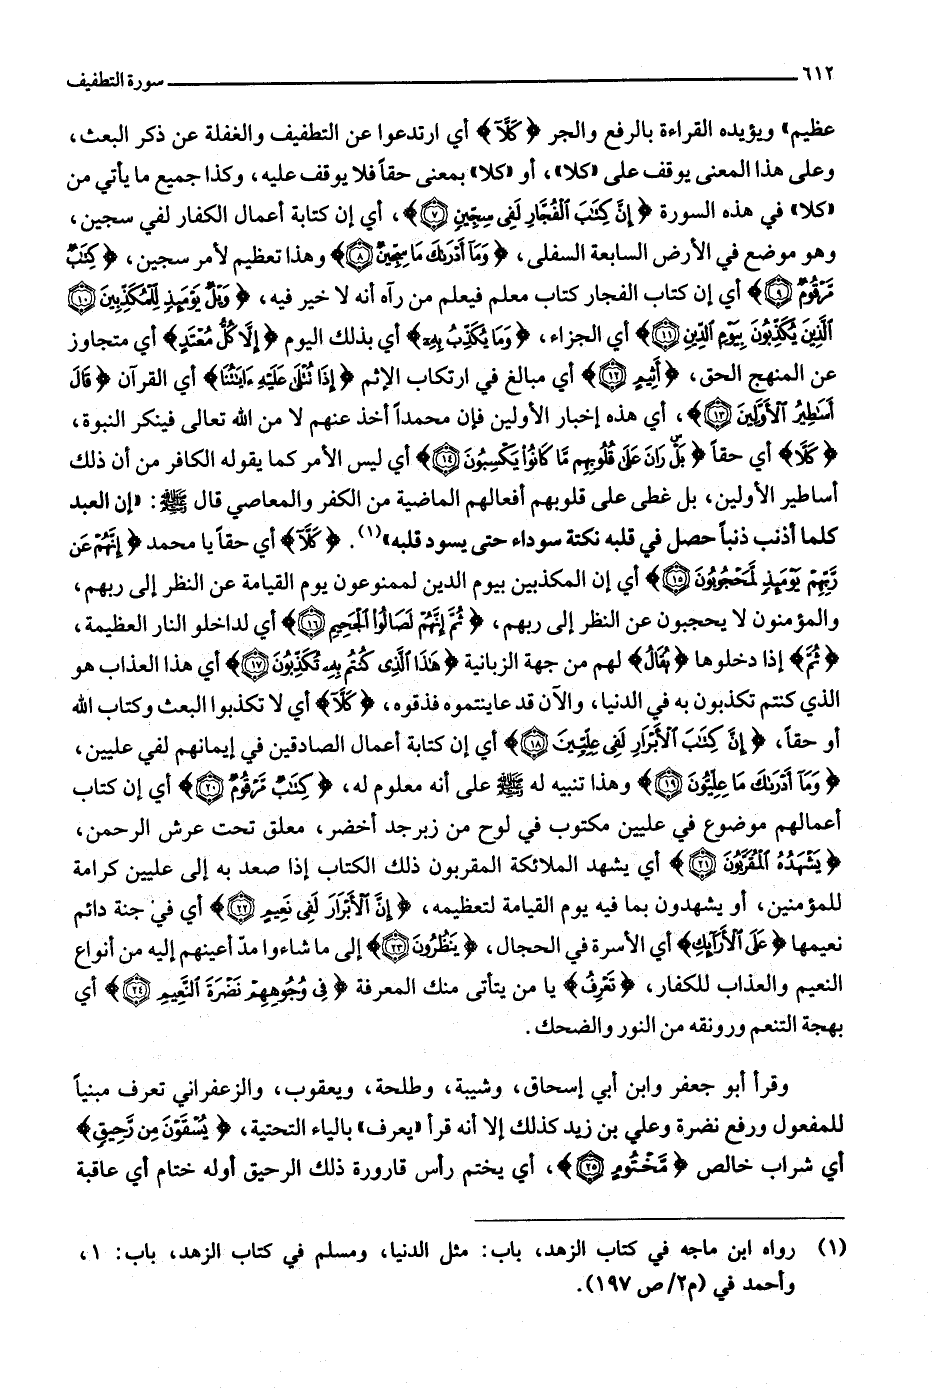 ٦١٢ سورة التطفيف
عظيم» ويؤيده القراءة بالرفع والجر ﴿كَلَّآ﴾ أي ارتدعوا عن التطفيف والغفلة عن ذكر البعث،
وعلى هذا المعنى يوقف على «كلا»، أو «كلا» بمعنى حقاً فلا يوقف عليه، وكذا جميع ما يأتي من
«كلا» في هذه السورة ﴿إِنَّ كِتَٰبَ ٱلْفُجَّارِ لَفِى سِجِّينٍ ٧﴾، أي إن كتابة أعمال الكفار لفي سجين،
وهو موضع في الأرض السابعة السفلى، ﴿وَمَآ أَدْرَىٰكَ مَا سِجِّينٌ ٨﴾ وهذا تعظيم لأمر سجين، ﴿كِتَٰبٌ
مَّرْقُومٌ ٩﴾ أي إن كتاب الفجار كتاب معلم فيعلم من رآه أنه لا خير فيه، ﴿وَيْلٌ يَوْمَئِذٍ لِّلْمُكَذِّبِينَ ١٠
ٱلَّذِينَ يُكَذِّبُونَ بِيَوْمِ ٱلدِّينِ ١١﴾ أي الجزاء، ﴿وَمَا يُكَذِّبُ بِهِۦٓ﴾ أي بذلك اليوم ﴿إِلَّا كُلُّ مُعْتَدٍ﴾ أي متجاوز
عن المنهج الحق، ﴿أَثِيمٍ ١٢﴾ أي مبالغ في ارتكاب الإثم ﴿إِذَا تُتْلَىٰ عَلَيْهِ ءَايَٰتُنَا﴾ أي القرآن ﴿قَالَ
أَسَٰطِيرُ ٱلْأَوَّلِينَ ١٣﴾، أي هذه إخبار الأولين فإن محمداً أخذ عنهم لا من الله تعالى فينكر النبوة،
﴿كَلَّا﴾ أي حقاً ﴿بَلْ رَانَ عَلَىٰ قُلُوبِهِم مَّا كَانُوا۟ يَكْسِبُونَ ١٤﴾ أي ليس الأمر كما يقوله الكافر من أن ذلك
أساطير الأولين، بل غطى على قلوبهم أفعالهم الماضية من الكفر والمعاصي قال ﷺ: «إن العبد
كلما أذنب ذنباً حصل في قلبه نكتة سوداء حتى يسود قلبه»(١). ﴿كَلَّآ﴾ أي حقاً يا محمد ﴿إِنَّهُمْ عَن
رَّبِّهِمْ يَوْمَئِذٍ لَّمَحْجُوبُونَ ١٥﴾ أي إن المكذبين بيوم الدين لممنوعون يوم القيامة عن النظر إلى ربهم،
والمؤمنون لا يحجبون عن النظر إلى ربهم، ﴿ثُمَّ إِنَّهُمْ لَصَالُوا۟ ٱلْجَحِيمِ ١٦﴾ أي لداخلو النار العظيمة،
﴿ثُمَّ﴾ إذا دخلوها ﴿يُقَالُ﴾ لهم من جهة الزبانية ﴿هَٰذَا ٱلَّذِى كُنتُم بِهِۦ تُكَذِّبُونَ ١٧﴾ أي هذا العذاب هو
الذي كنتم تكذبون به في الدنيا، والآن قد عاينتموه فذقوه، ﴿كَلَّآ﴾ أي لا تكذبوا البعث وكتاب الله
أو حقاً، ﴿إِنَّ كِتَٰبَ ٱلْأَبْرَارِ لَفِى عِلِّيِّينَ ١٨﴾ أي إن كتابة أعمال الصادقين في إيمانهم لفي عليين،
﴿وَمَآ أَدْرَىٰكَ مَا عِلِّيُّونَ ١٩﴾ وهذا تنبيه له ﷺ على أنه معلوم له، ﴿كِتَٰبٌ مَّرْقُومٌ ٢٠﴾ أي إن كتاب
أعمالهم موضوع في عليين مكتوب في لوح من زبرجد أخضر، معلق تحت عرش الرحمن،
﴿يَشْهَدُهُ ٱلْمُقَرَّبُونَ ٢١﴾ أي يشهد الملائكة المقربون ذلك الكتاب إذا صعد به إلى عليين كرامة
للمؤمنين، أو يشهدون بما فيه يوم القيامة لتعظيمه، ﴿إِنَّ ٱلْأَبْرَارَ لَفِى نَعِيمٍ ٢٢﴾ أي في جنة دائم
نعيمها ﴿عَلَى ٱلْأَرَآئِكِ﴾ أي الأسرة في الحجال، ﴿يَنظُرُونَ ٢٣﴾ إلى ما شاءوا مدّ أعينهم إليه من أنواع
النعيم والعذاب للكفار، ﴿تَعْرِفُ﴾ يا من يتأتى منك المعرفة ﴿فِى وُجُوهِهِمْ نَضْرَةَ ٱلنَّعِيمِ ٢٤﴾ أي
بهجة التنعم ورونقه من النور والضحك.
وقرأ أبو جعفر وابن أبي إسحاق، وشيبة، وطلحة، ويعقوب، والزعفراني تعرف مبنياً
للمفعول ورفع نضرة وعلي بن زيد كذلك إلا أنه قرأ «يعرف» بالياء التحتية، ﴿يُسْقَوْنَ مِن رَّحِيقٍ﴾
أي شراب خالص ﴿مَّخْتُومٍ ٢٥﴾، أي يختم رأس قارورة ذلك الرحيق أوله ختام أي عاقبة
(١) رواه ابن ماجه في كتاب الزهد، باب: مثل الدنيا، ومسلم في كتاب الزهد، باب: ١،
وأحمد في (م٢/ ص ١٩٧).